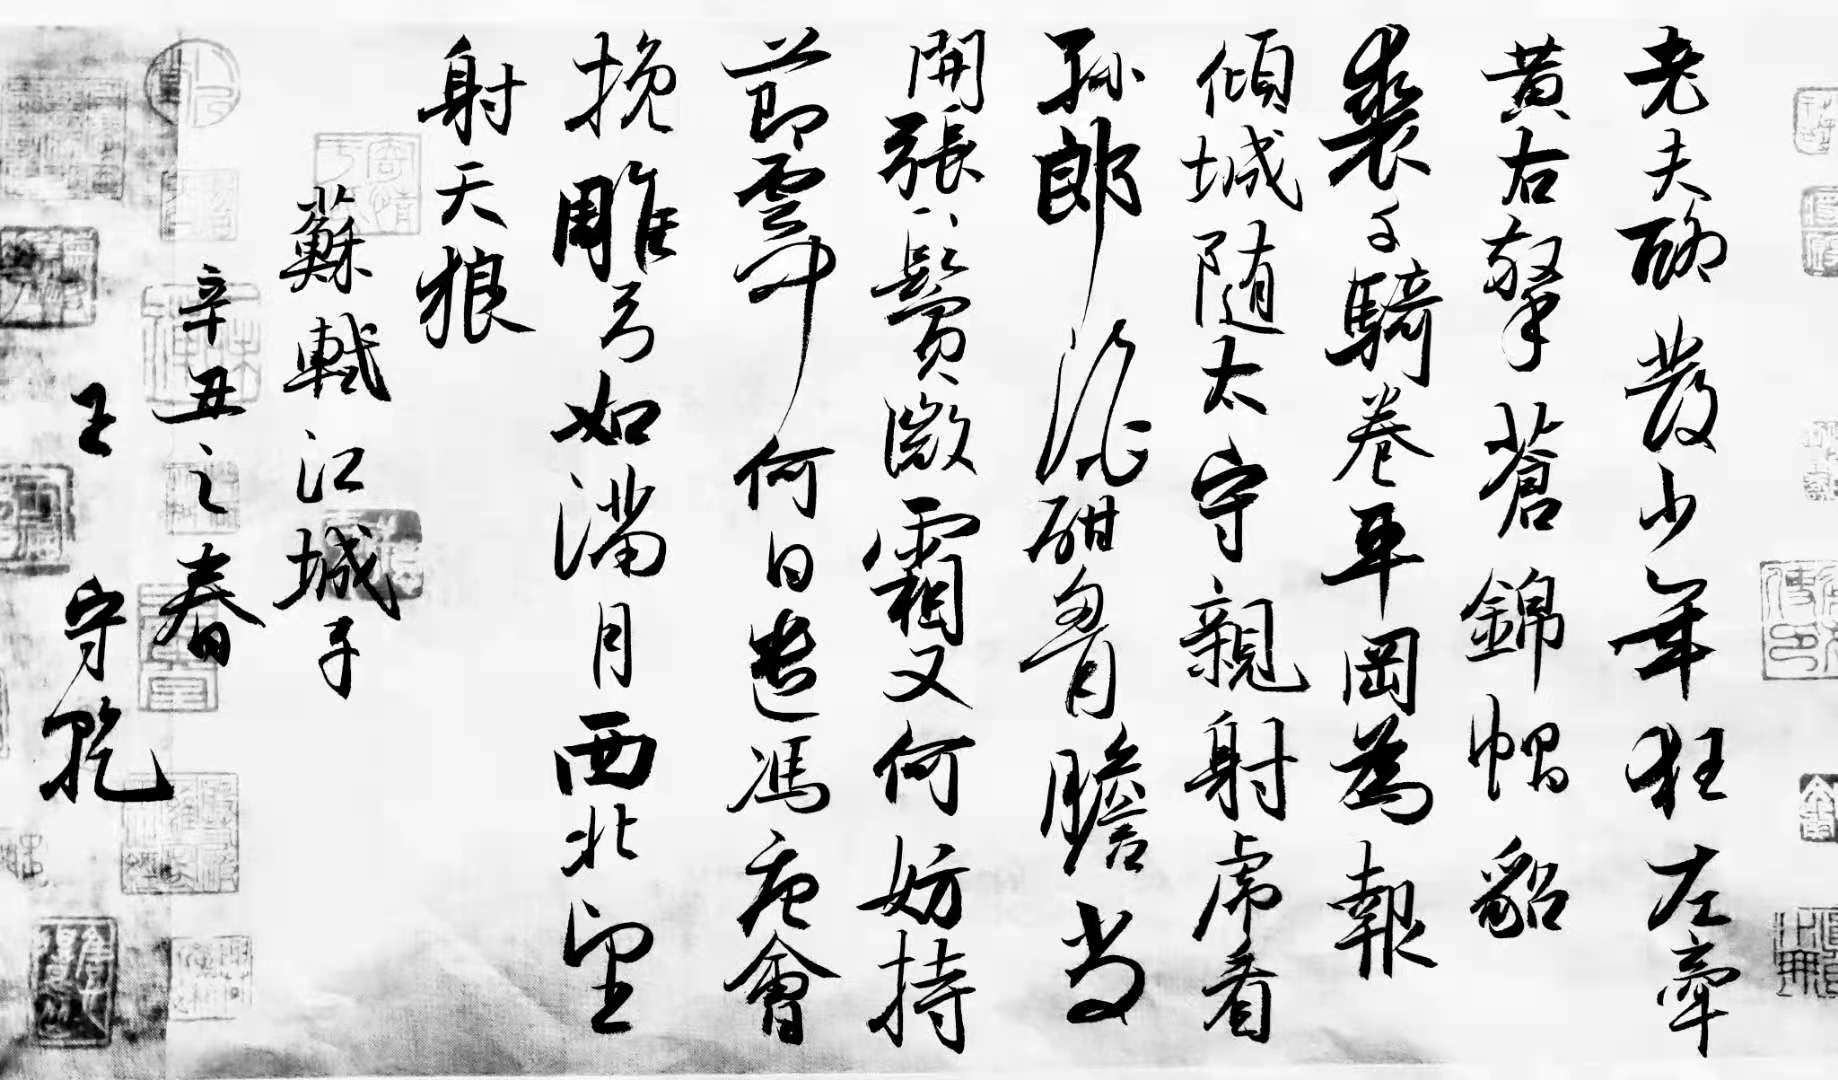 老夫聊發少年狂左牽
黃右擎蒼錦帽貂
裘千騎卷平岡為報
傾城随太守親射虎看
孫郎酒酣胸膽尚
開張鬢微霜又何妨持
節雲中何日遣馮唐會
挽雕弓如滿月西北望
射天狼
蘇軾江城子
辛丑之春
王守